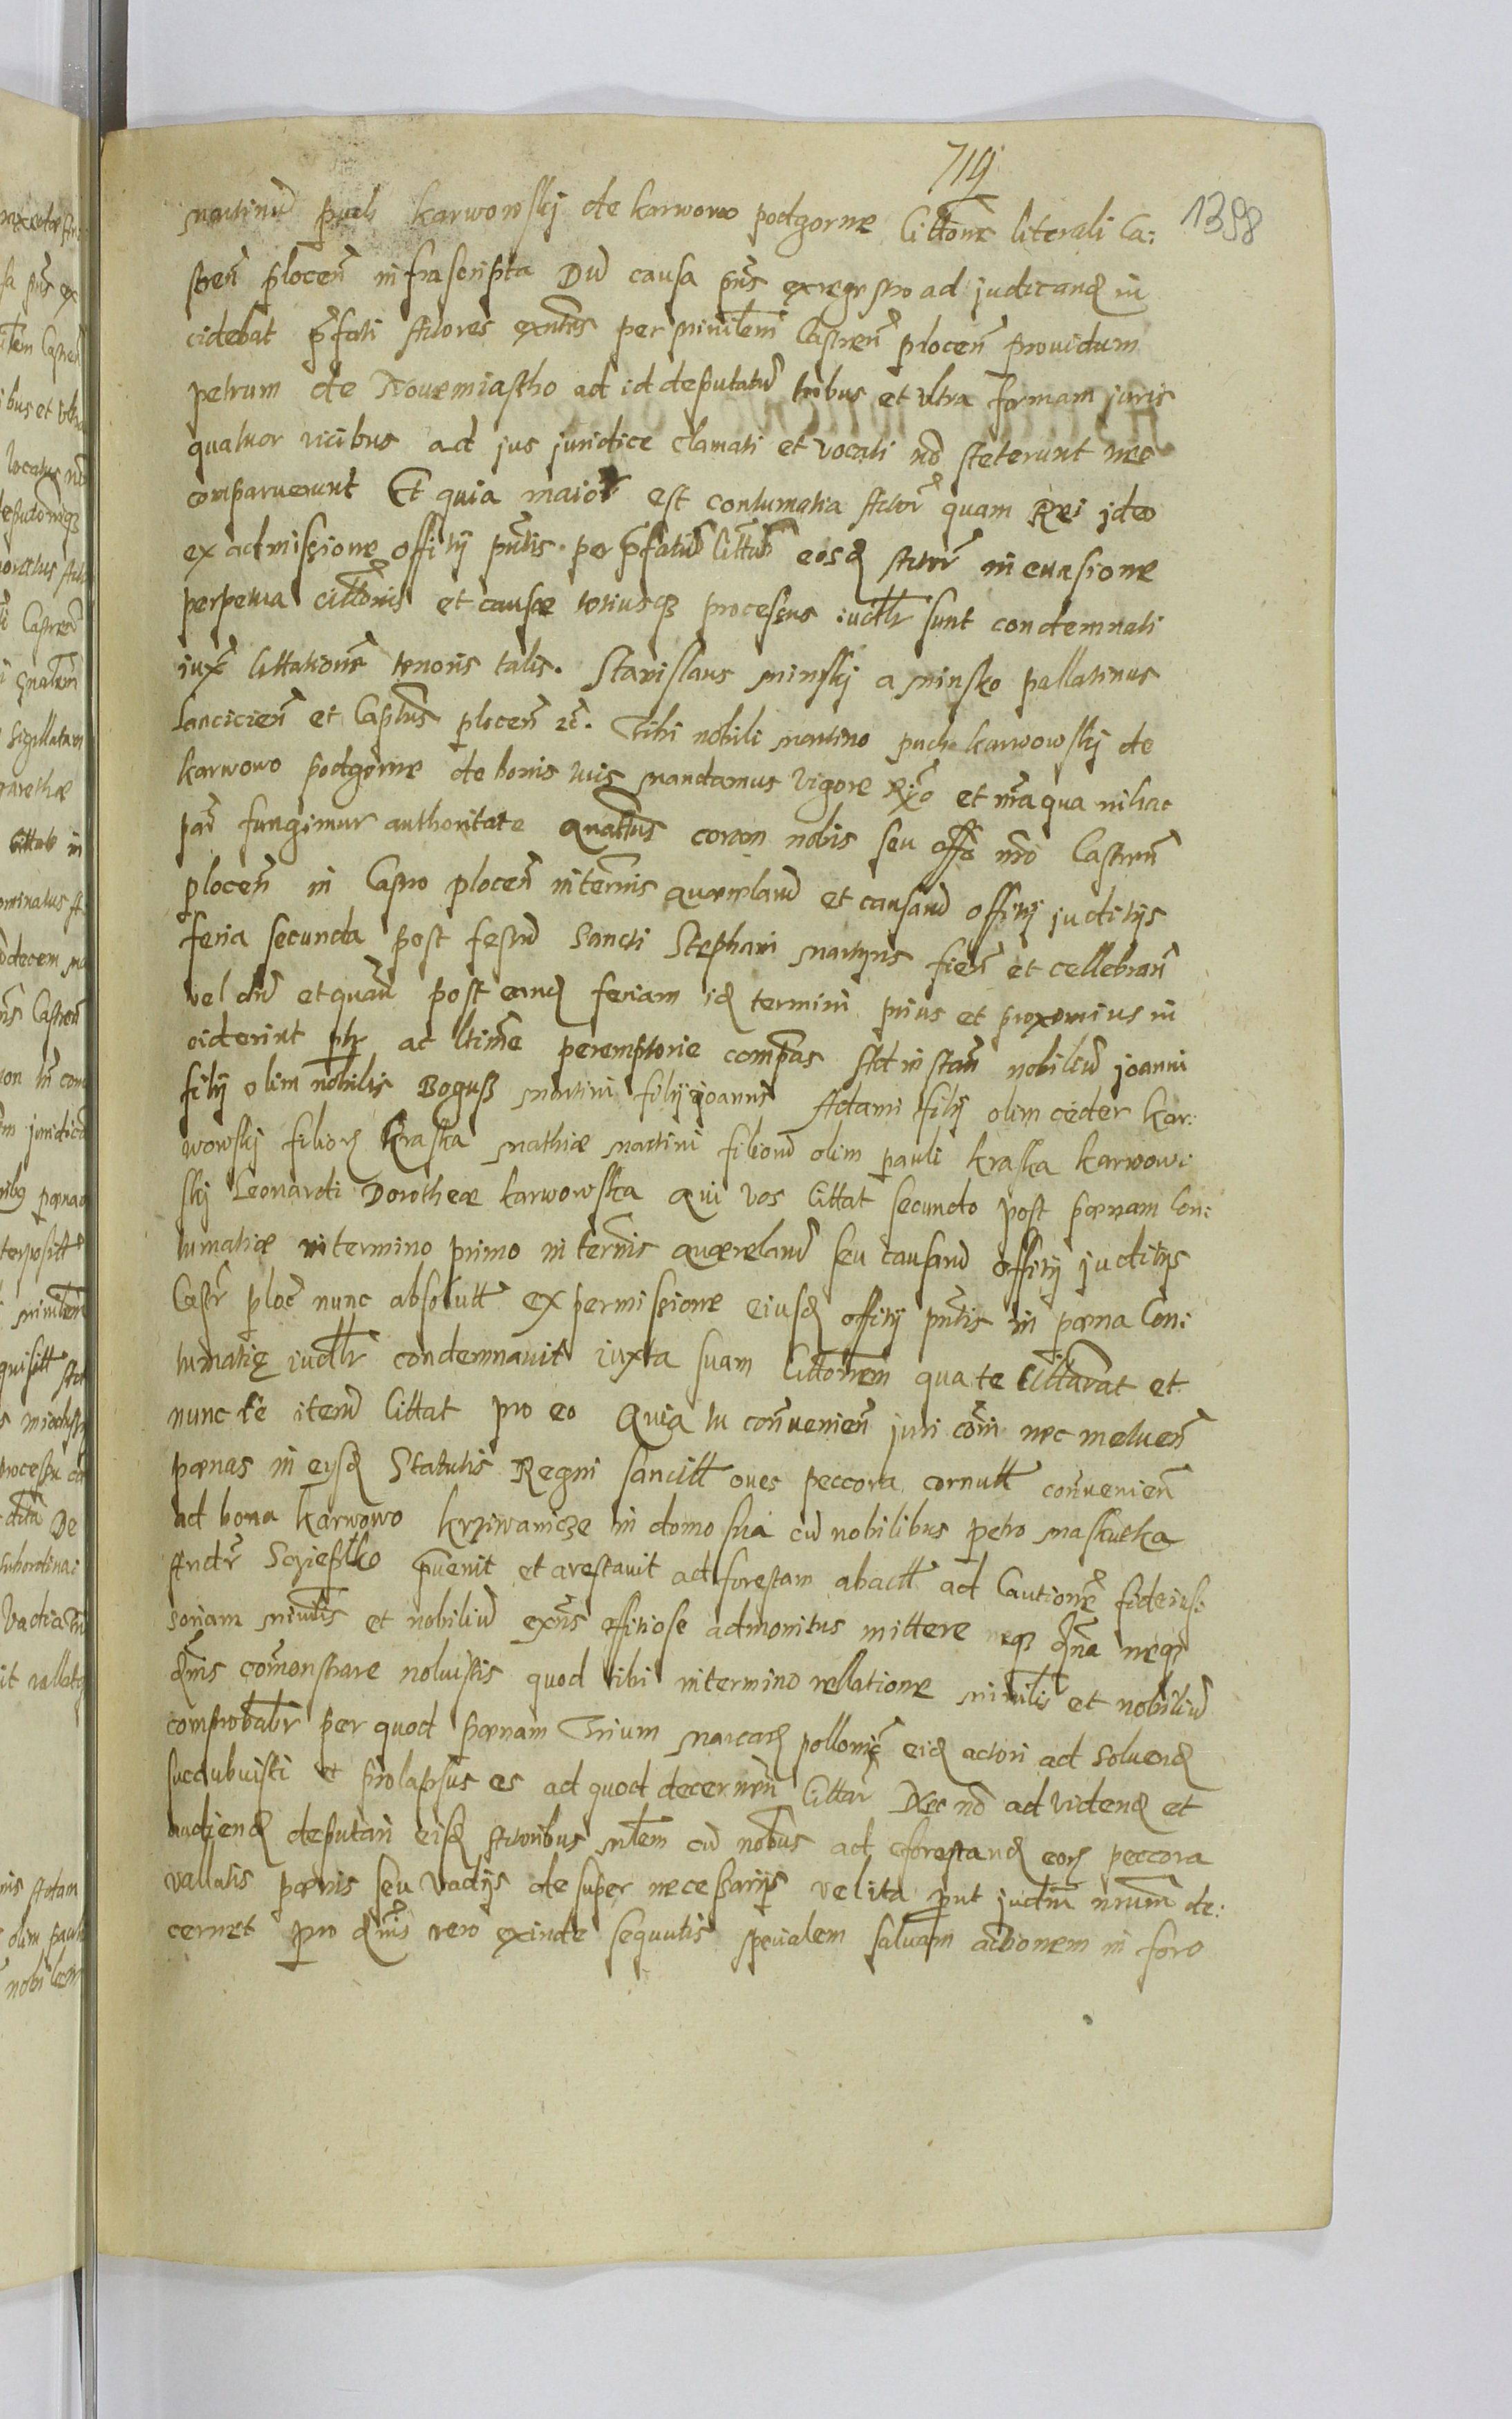 719
1398
martinum puch karwowskj de karwowo podgorne Cittone literali Ca:
stren plocen infrascripta Dum causa pns ex regestro ad judicand in
cidebat pfati Actores exntes per ministlem Castren plocen providum
petrum de Novemiastho ad id deputatum tribus et ultra formam juris
quatuor vicibus ad jus juridice clamati et vocati no steterunt nec
comparuerunt Et quia maior est contumatia Actor quam Rei jdeo
ex admissione offitij pntis per pfatum Cittatum eosd Actor in evasione
perpetua cittonis et causæ totiusq processus iudlr sunt condemnati
iux Cittationem tenoris talis. Stanislaus minskj a minsko pallatinus
lancicien et Captus plocen etc. Tibi nobili martino puch karwowskj de
karwowo podgorne de bonis tuis mandamus Vigore Rgio et nra qua in hac
pte fungimur authoritate Quattus coram nobis seu offo nro Castren
plocen in Castro plocen in terminis quærelarum et causarum offitij juditijs
feria secunda post festum Sancti Stephani martyris fien et cellebran
vel dum et quan post eand feriam id termini prius et proximius in
ciderint ptr ac ltime peremptorie compas Ad instan nobilium joanni
filij olim nobilis Boguss martini filij joannis Adami filij olim ceder kar:
wowskj filior kraska mathiæ martini filiorum olim pauli kraska karwow:
skj Leonardi Dorotheæ karwowska Qui vos Cittat secundo post pænam Con:
tumatiæ in termino primo in terminis quærelarum seu causarum offitij juditijs
Castr ploc nunc absolutt ex permissione eiusd offitij pntis in pæna Con:
tumatię iudlr condemnavit iuxta suam Cittonem qua te Cittarat et
nunc te iterum Cittat pro eo Quia tu convenien juri comi nec metuen
pænas in eijsd Statutis Regni sancitt oves peccora cornutt convenien
ad bona karwowo krziwanicze in domo sua cum nobilibus petro maskutka
Andr Scziepko pvenit et arestavit ad forestam abactt ad Cautione fideius:
soriam ministlis et nobilium exns offitiose admonitus mittere neq dna neq
dnis comonstrare noluistis quod tibi in termino rellatione ministlis et nobilium
comprobablr per quod pænam Trium marcar pollonic eid actori ad solvend
succubuisti et prolapsus es ad quod decernen Cittar Nec no ad vidend et
audiend deputari eisd Actoribus mlem cum nobus ad eforestand eor peccora
vallatis pænis seu vadijs desuper necessarijs vel ita put judm nrum de:
cernet pro dnis vero exinde sequutis specialem salvam actionem in foro